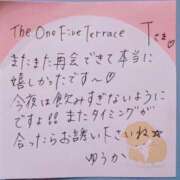 The One Five Terrace Tさま♡
またまた再会できて本当に
嬉しかったです〜♡
今夜は飲みすぎないように
ですよ!! またタイミングが
合ったらお誘い下さいね☆
ゆうか